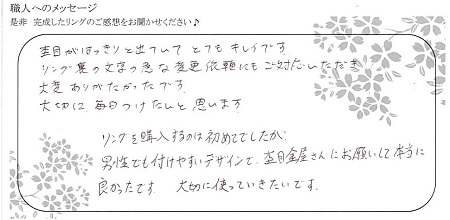 職人へのメッセージ
是非 完成したリングのご感想をお聞かせください♪
杢目がはっきりと出ていて とても キレイです。
リング裏の文字の急な変更依頼にもご対応いただき
大変 ありがたかったです。
大切に 毎日つけたいと 思います
リングを購入するのは初めてでしたが、
男性でも付けやすいデザインで、杢目金屋さんにお願いして本当に
良かったです 大切に使っていきたいです。